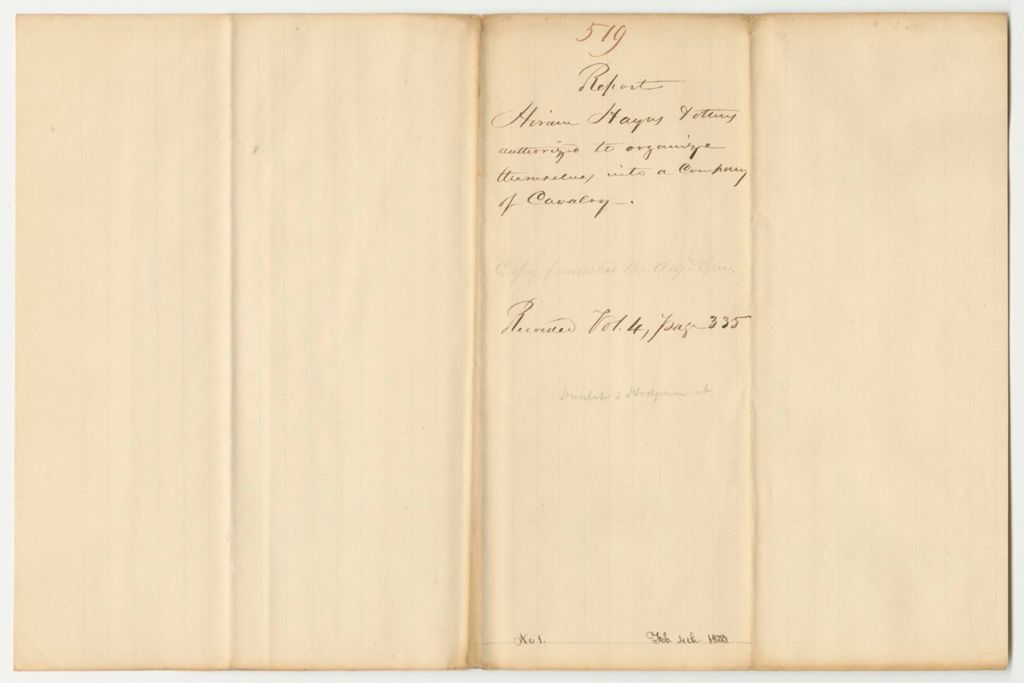 519
Report
Hiram Hayns & others
authorized to organize
themselves into a Company
of Cavalry.
Copy furnished the Adj. Gen.
Recorded Vol. 4, page 335
No 1. Feb. 4th